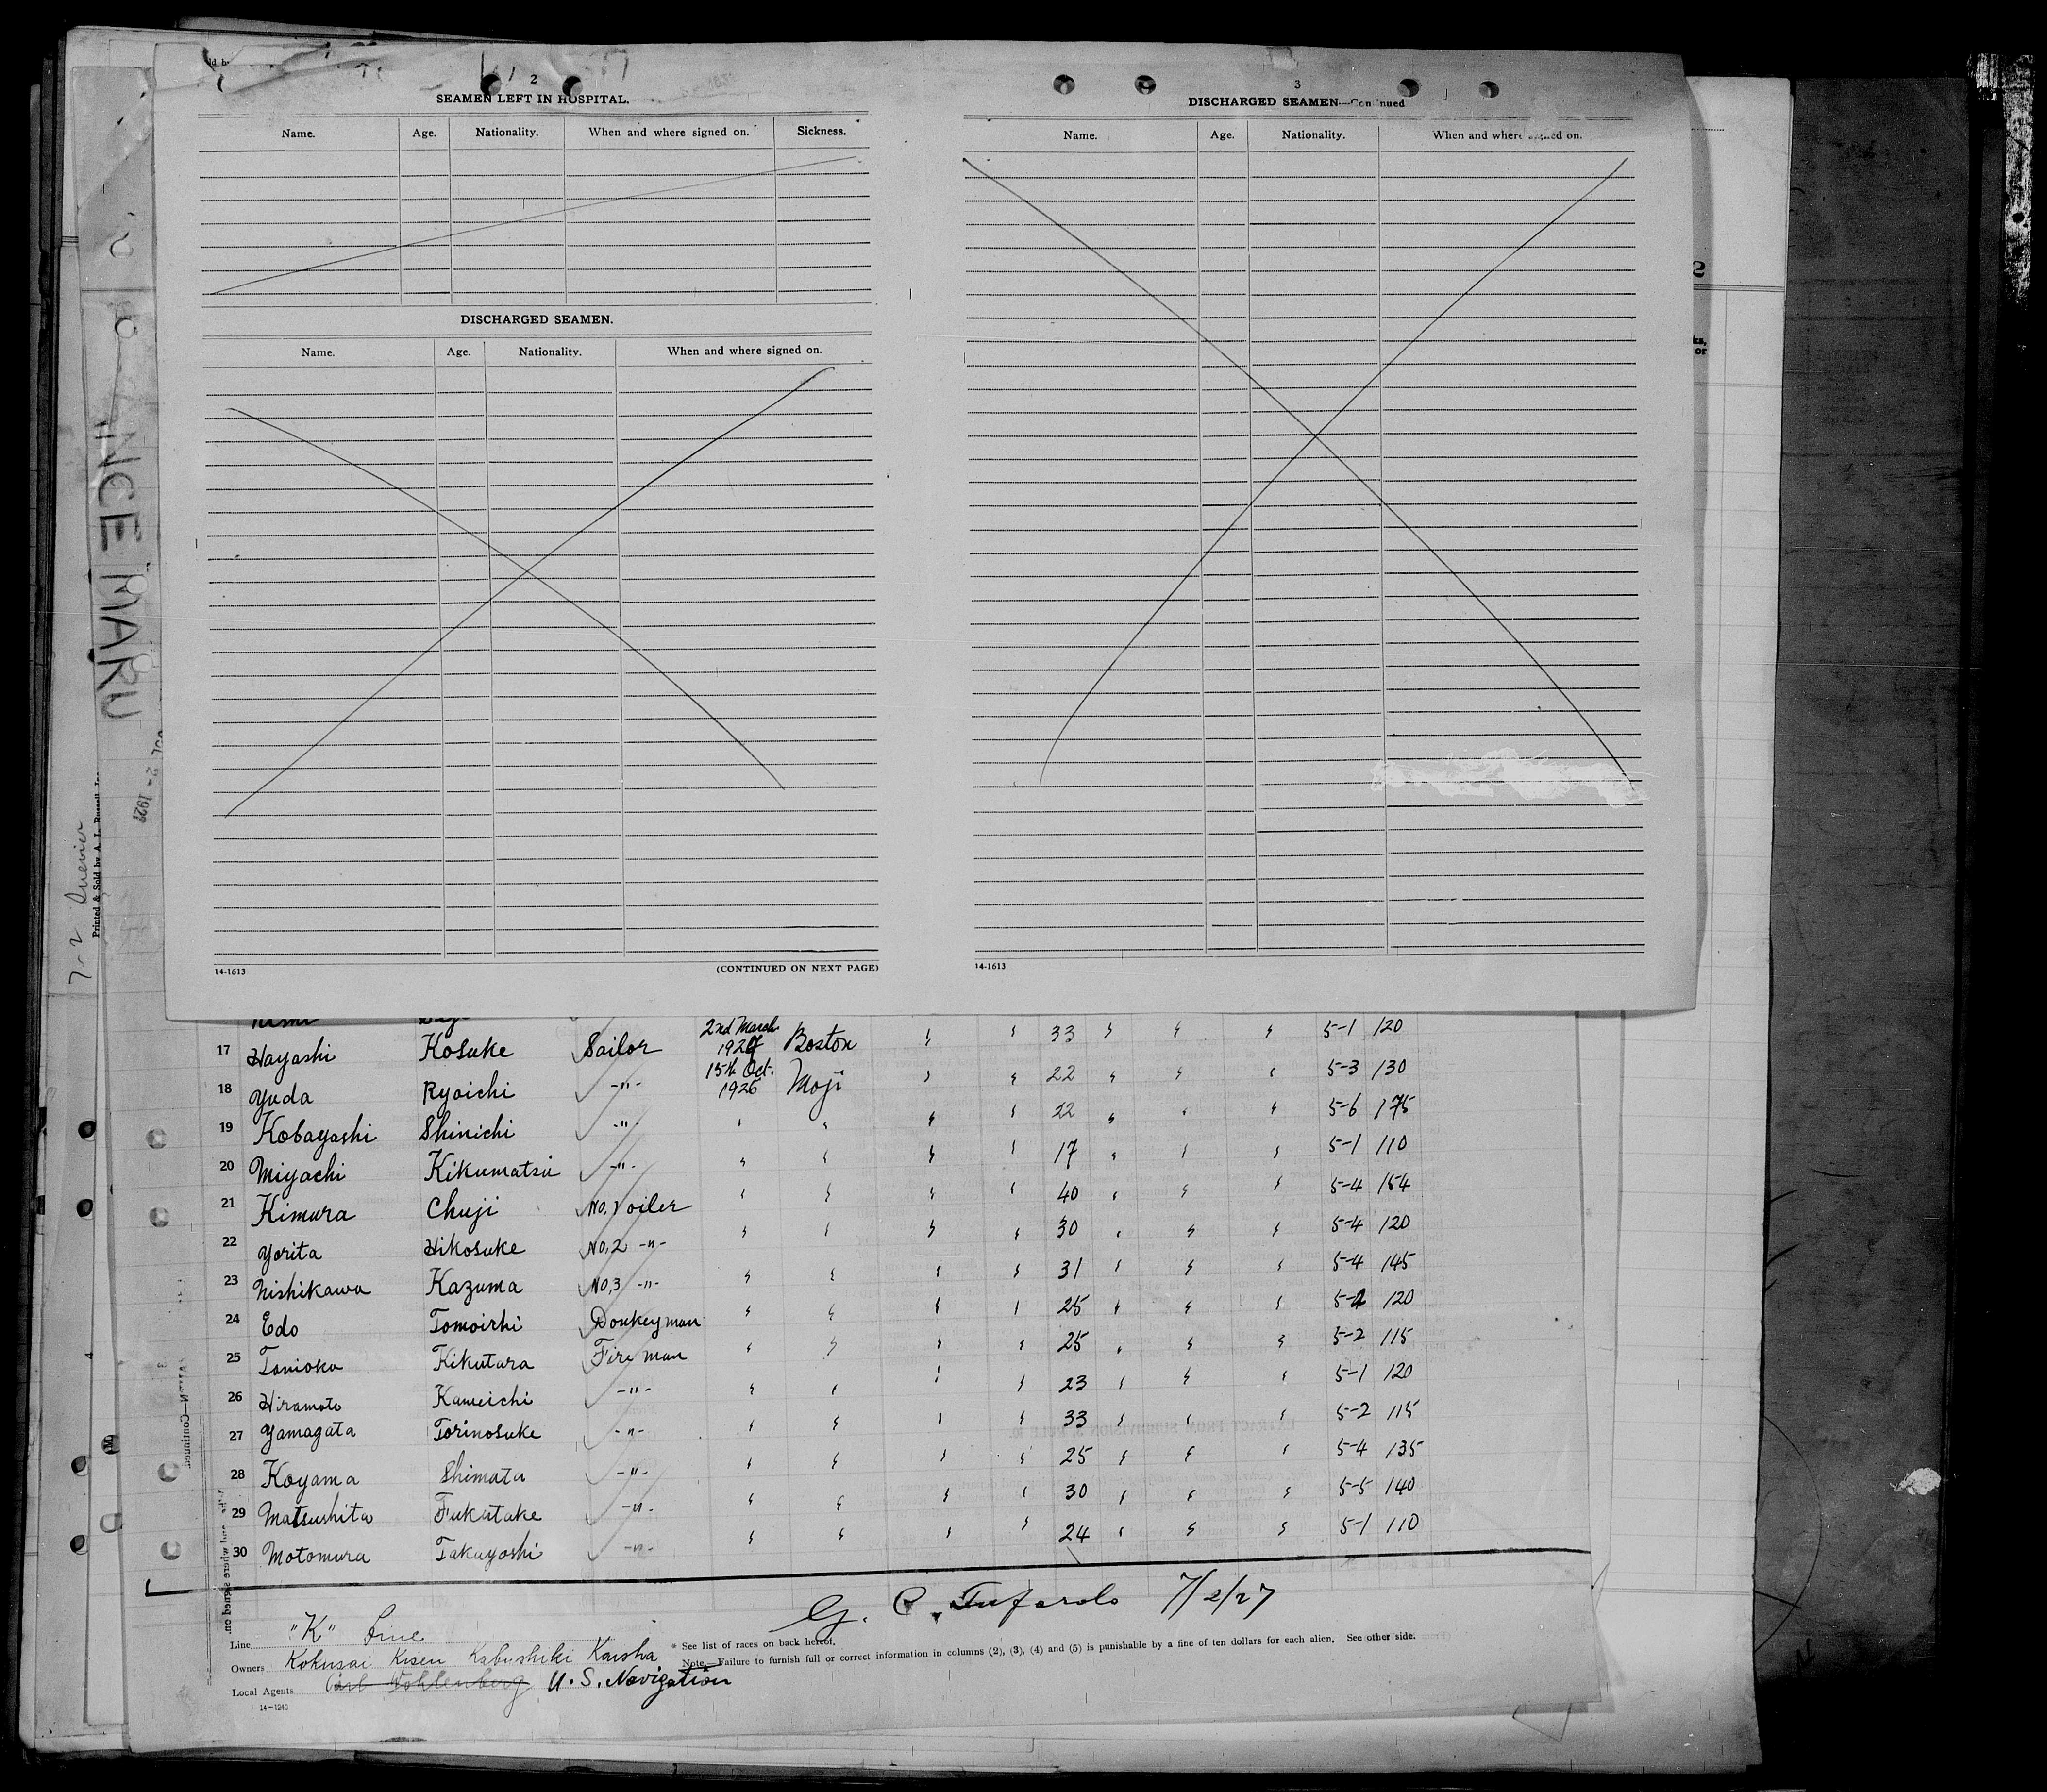 2
SEAMEN LEFT IN HOSPITAL.
Name. Age. Nationality. When and where signed on. Sickness.
DISCHARGED SEAMEN.
Name. Age. Nationality. When and where signed on.
14-1613 (CONTINUED ON NEXT PAGE)
3
DISCHARGED SEAMEN—Continued
Name. Age. Nationality. When and where signed on.
14-1613
NGE MARU
2 - 1927
7-2
Printed & Sold by A. L. Russell
17 Hayashi Kosuke Sailor 2nd March 1927 Boston 33 5-1 120
18 Yuda Ryoichi -"- 15th Oct. 1926 Moji 22 5-3 130
19 Kobayashi Shinichi -"- 22 5-6 175
20 Miyachi Kikumatsu -"- 17 5-1 110
21 Kimura Chuji No.1 oiler 40 5-4 154
22 Yorita Hikosuke No.2 -"- 30 5-4 120
23 Nishikawa Kazuma No.3 -"- 31 5-4 145
24 Edo Tomoichi Donkeyman 25 5-2 120
25 Tanioka Kikutara Fireman 25 5-2 115
26 Hiramoto Kameichi -"- 23 5-1 120
27 Yamagata Torinosuke -"- 33 5-2 115
28 Koyama Shimata -"- 25 5-4 135
29 Matsushita Fukutake -"- 30 5-5 140
30 Motomura Takayoshi -"- 24 5-1 110
G. C. Tufarolo 7/2/27
Line "K" Line
* See list of races on back hereof.
Owners Kokusai Kisen Kabushiki Kaisha
Note.—Failure to furnish full or correct information in columns (2), (3), (4) and (5) is punishable by a fine of ten dollars for each alien. See other side.
Local Agents Carl Wohlenberg U.S. Navigation
14-1240